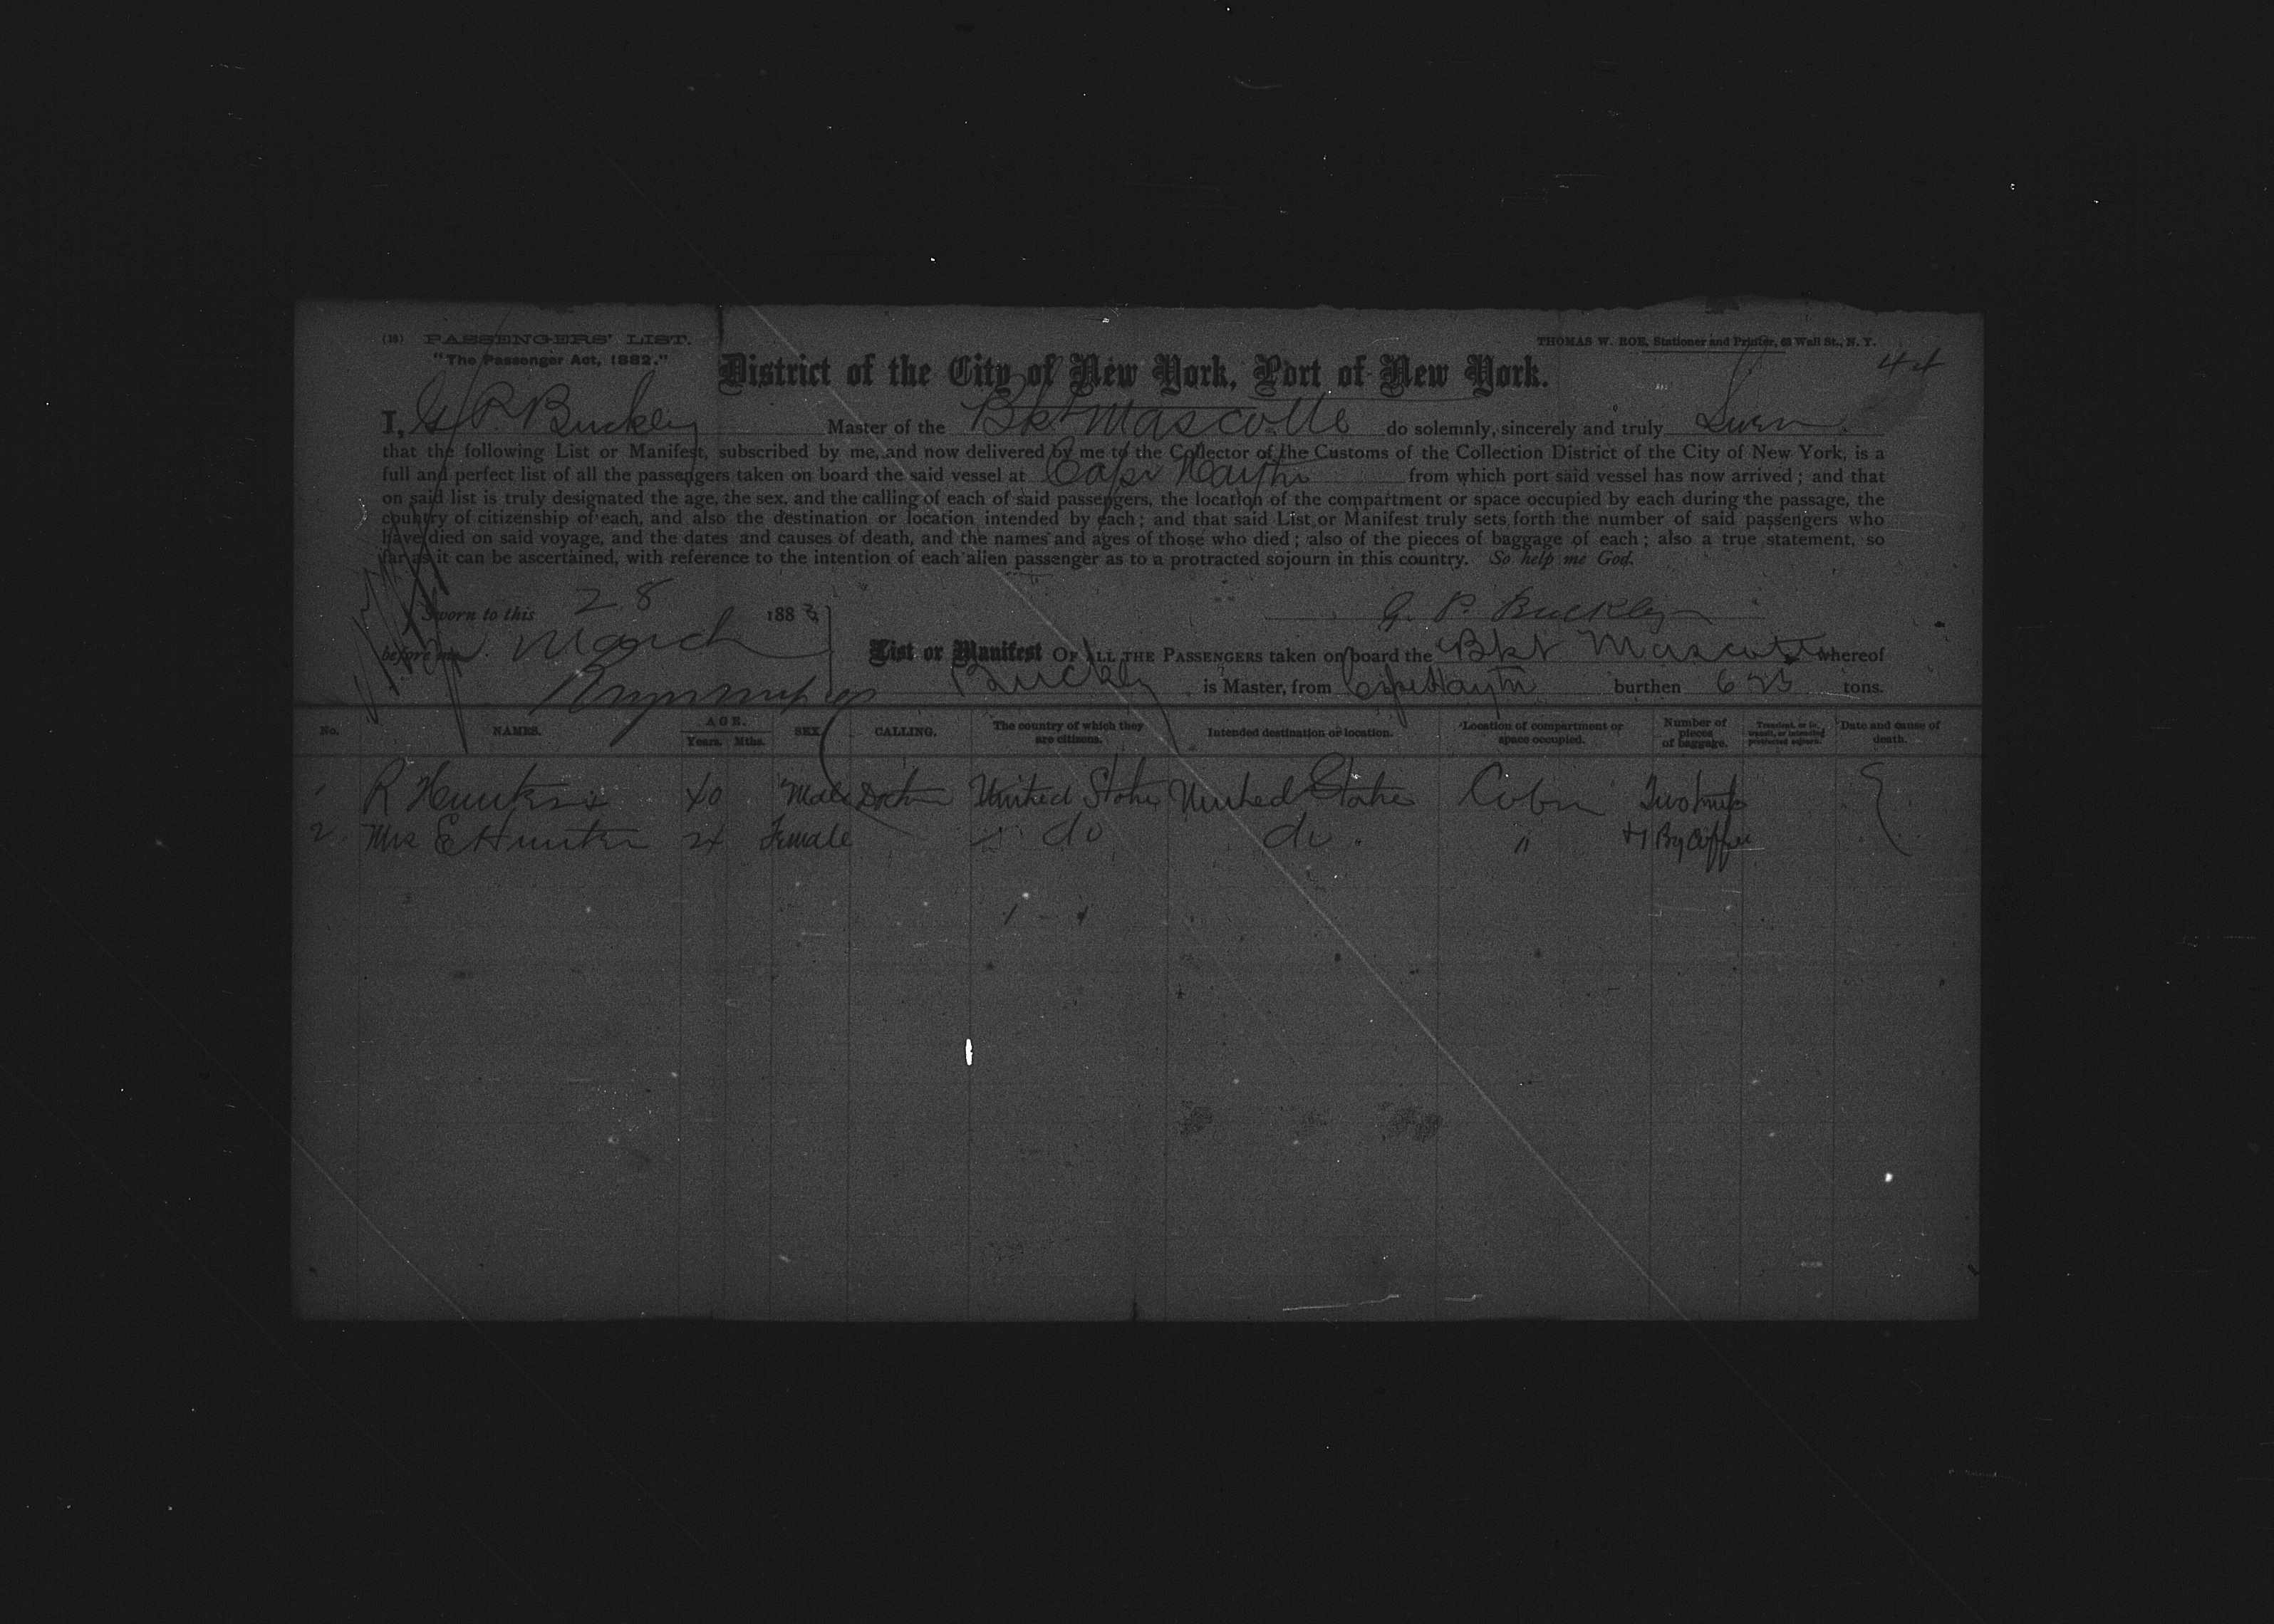 (18) PASSENGERS' LIST.
"The Passenger Act, 1882."
THOMAS W. ROE, Stationer and Printer, 63 Wall St., N. Y.
44
District of the City of New York, Port of New York.
I, G. P. Buckley Master of the Bkt Mascotte do solemnly, sincerely and truly Swear
that the following List or Manifest, subscribed by me, and now delivered by me to the Collector of the Customs of the Collection District of the City of New York, is a
full and perfect list of all the passengers taken on board the said vessel at Cape Hayti from which port said vessel has now arrived; and that
on said list is truly designated the age, the sex, and the calling of each of said passengers, the location of the compartment or space occupied by each during the passage, the
country of citizenship of each, and also the destination or location intended by each; and that said List or Manifest truly sets forth the number of said passengers who
have died on said voyage, and the dates and causes of death, and the names and ages of those who died; also of the pieces of baggage of each; also a true statement, so
far as it can be ascertained, with reference to the intention of each alien passenger as to a protracted sojourn in this country. So help me God.
Sworn to this 28 188
G. P. Buckley
before me March
List or Manifest OF ALL THE PASSENGERS taken on board the Bkt Mascotte whereof
Buckley is Master, from Cape Hayti burthen tons.
No. NAMES. AGE. Years. Mths. SEX. CALLING. The country of which they are citizens. Intended destination or location. Location of compartment or space occupied. Number of pieces of baggage. Transient, or in transit, or intending protracted sojourn. Date and cause of death.
1 R Hunter 40 Male Doctor United States United States Cabin Two
2 Mrs E Hunter 24 Female do do "